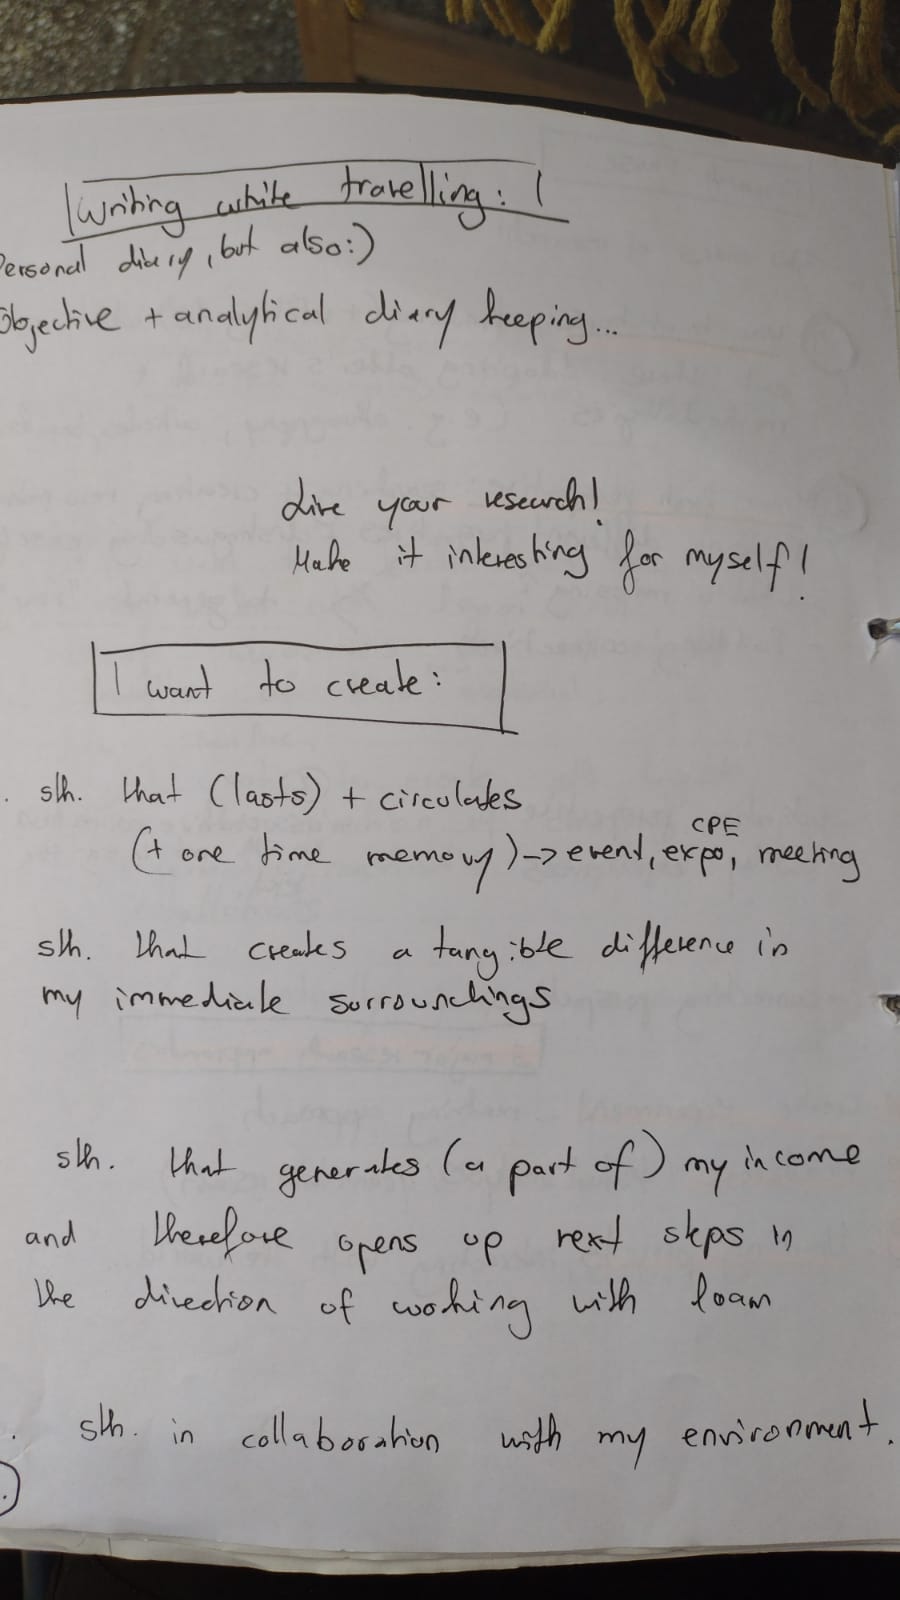 Writing while travelling:
Personal diary, but also:)
Objective + analytical diary keeping...
Live your research!
Make it interesting for myself!
I want to create:
sth. that (lasts) + circulates
CPE
(+ one time memory) -> event, expo, meeting
sth. that creates a tangible difference in
my immediate surroundings
sth. that generates (a part of) my income
and therefore opens up next steps in
the direction of working with loam
sth. in collaboration with my environment.